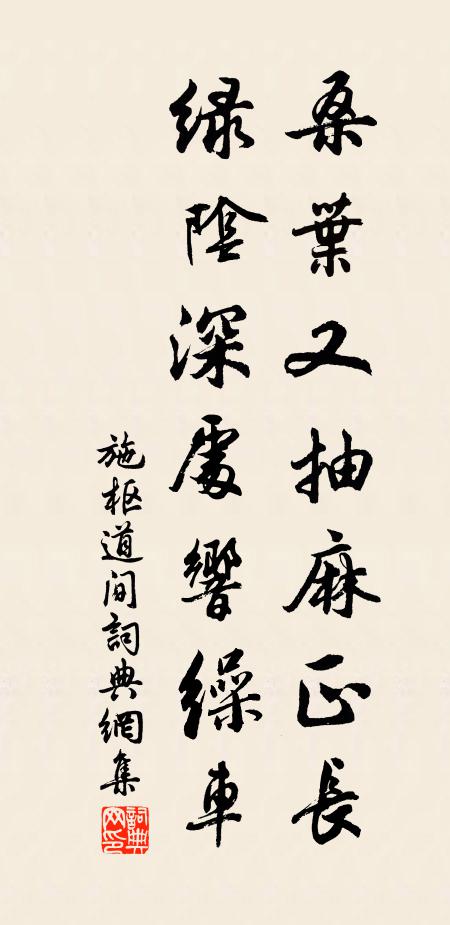 桑葉又抽麻正長
綠陰深處響繰車
施枢道间詞典網集
詞典网印